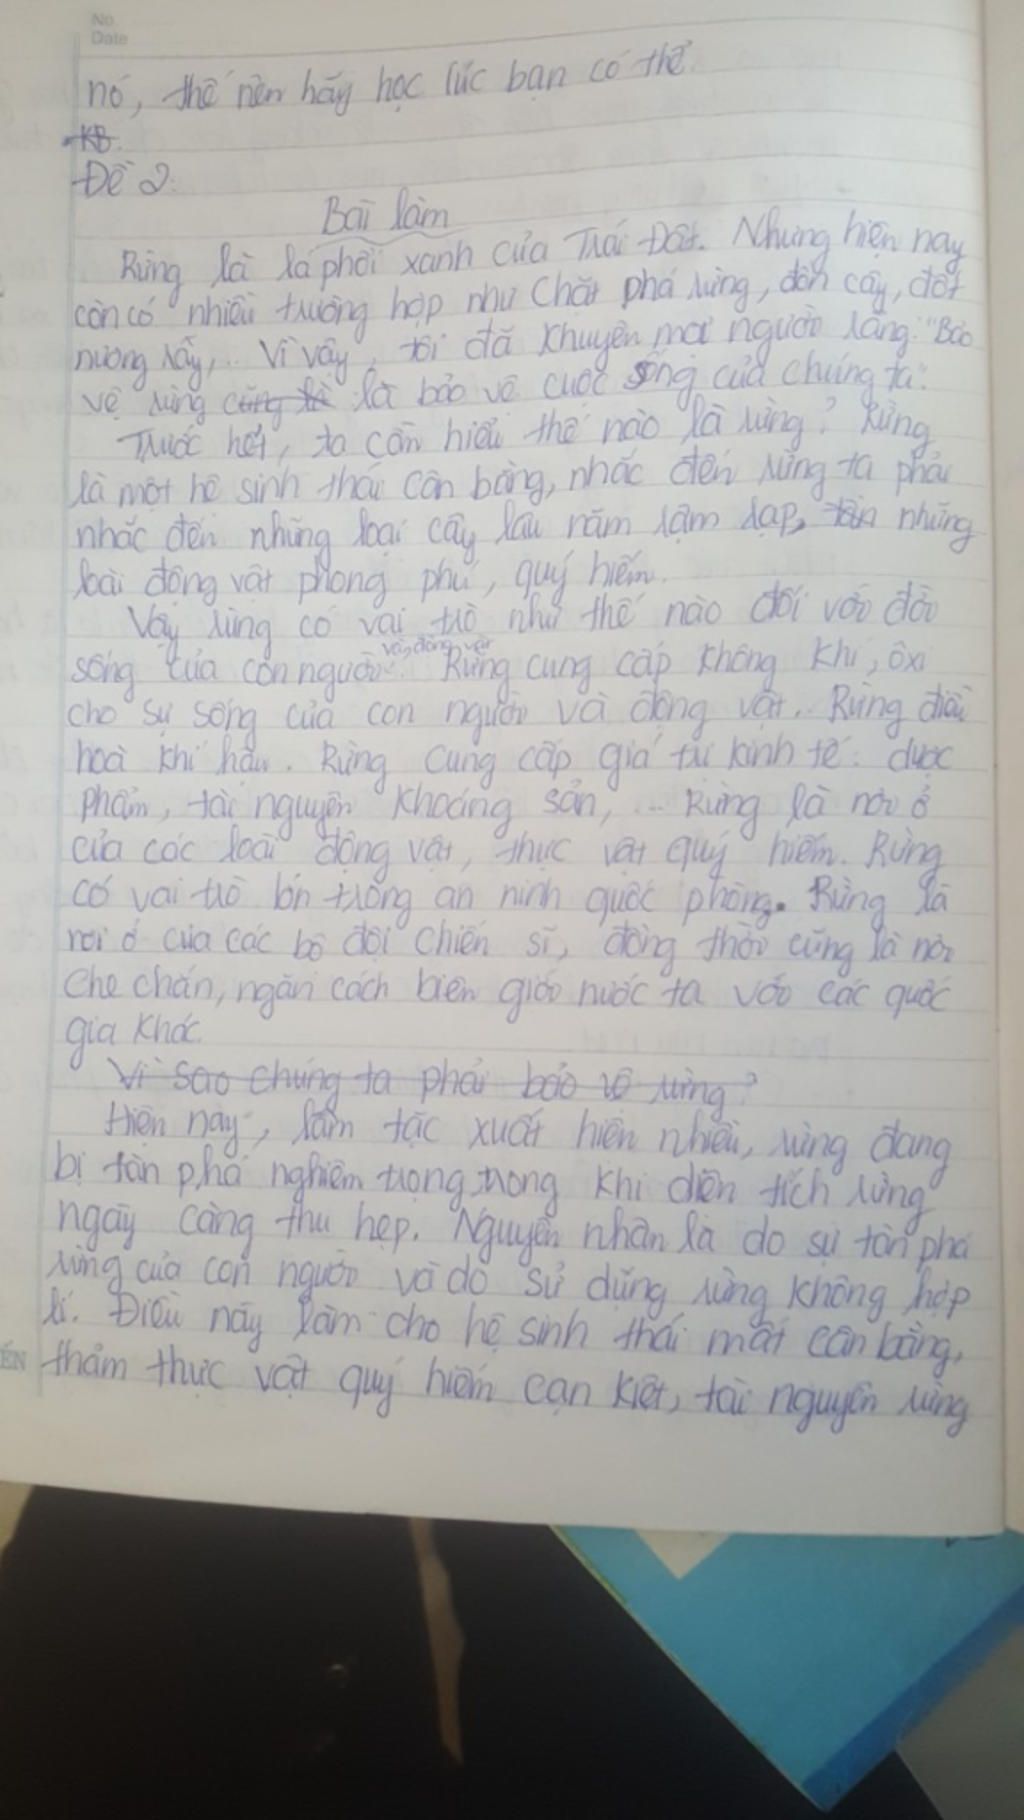 No.
Date
nó, thế nên hãy học lúc bạn có thể.
KB.
Đề 2:
Bài làm
Rừng là lá phổi xanh của Trái Đất. Nhưng hiện nay
còn có nhiều trường hợp như chặt phá rừng, đốn cây, đốt
nương rẫy,... Vì vậy, tôi đã khuyên mọi người rằng: "Bảo
vệ rừng cũng là là bảo vệ cuộc sống của chúng ta".
Trước hết, ta cần hiểu thế nào là rừng? Rừng
là một hệ sinh thái cân bằng, nhắc đến rừng ta phải
nhắc đến những loại cây lâu năm rậm rạp, những
loài động vật phong phú, quý hiếm.
Vậy rừng có vai trò như thế nào đối với đời
sống của con người và động vật? Rừng cung cấp không khí, ôxi
cho sự sống của con người và động vật. Rừng điều
hoà khí hậu. Rừng cung cấp giá trị kinh tế: dược
phẩm, tài nguyên khoáng sản, ... Rừng là nơi ở
của các loài động vật, thực vật quý hiếm. Rừng
có vai trò lớn trong an ninh quốc phòng. Rừng là
nơi ở của các bộ đội chiến sĩ, đồng thời cũng là nơi
che chắn, ngăn cách biên giới nước ta với các quốc
gia khác.
Vì sao chúng ta phải bảo vệ rừng?
Hiện nay, lâm tặc xuất hiện nhiều, rừng đang
bị tàn phá nghiêm trọng, trong khi diện tích rừng
ngày càng thu hẹp. Nguyên nhân là do sự tàn phá
rừng của con người và do sử dụng rừng không hợp
lí. Điều này làm cho hệ sinh thái mất cân bằng,
thảm thực vật quý hiếm cạn kiệt, tài nguyên rừng